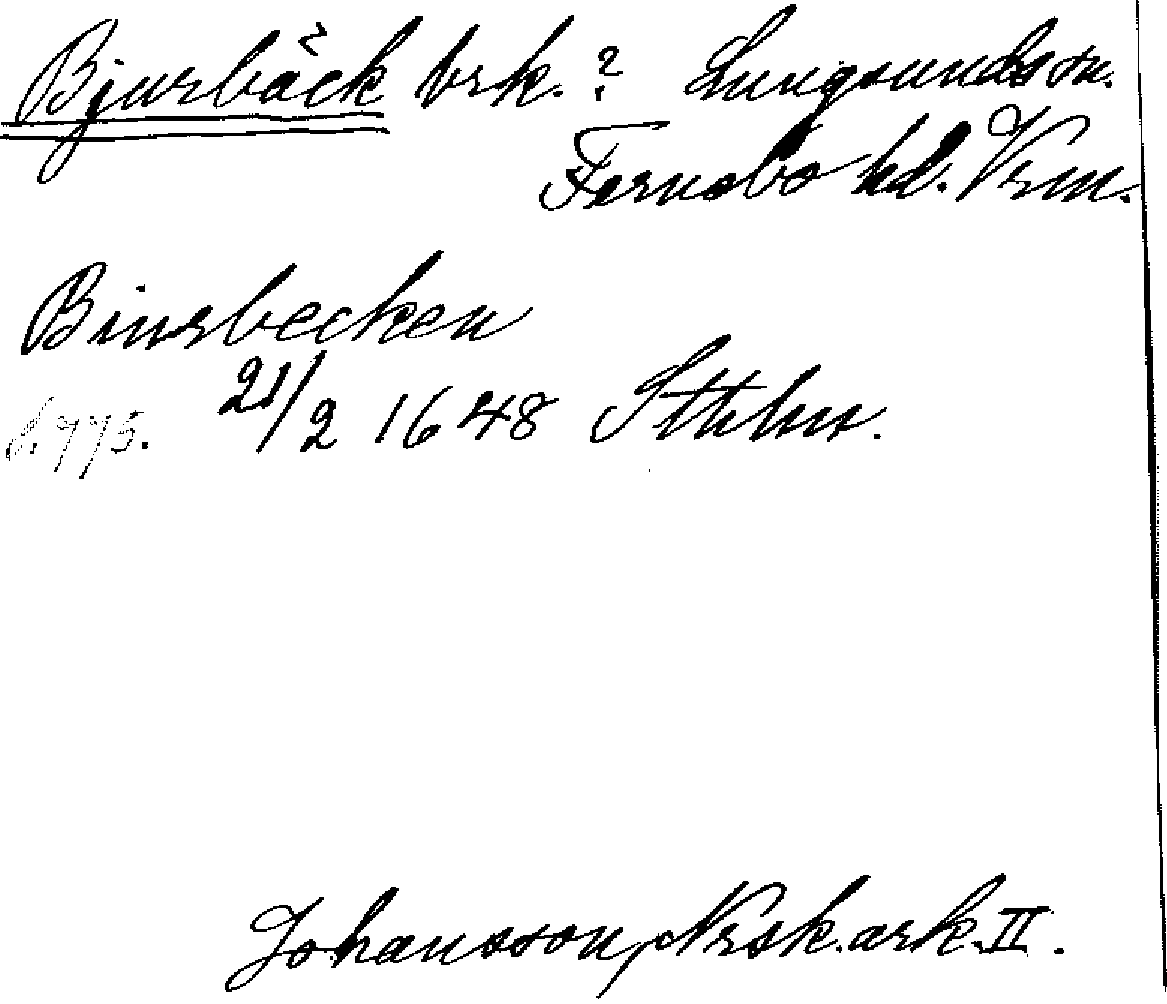 Bjurbäck brk. ? Lungsunds sn.
Færnebo hd. Vrm.
Biurbecken
s. 775. 21/2 1648 Sthlm.
Johansson, Nrsk. ark. II.